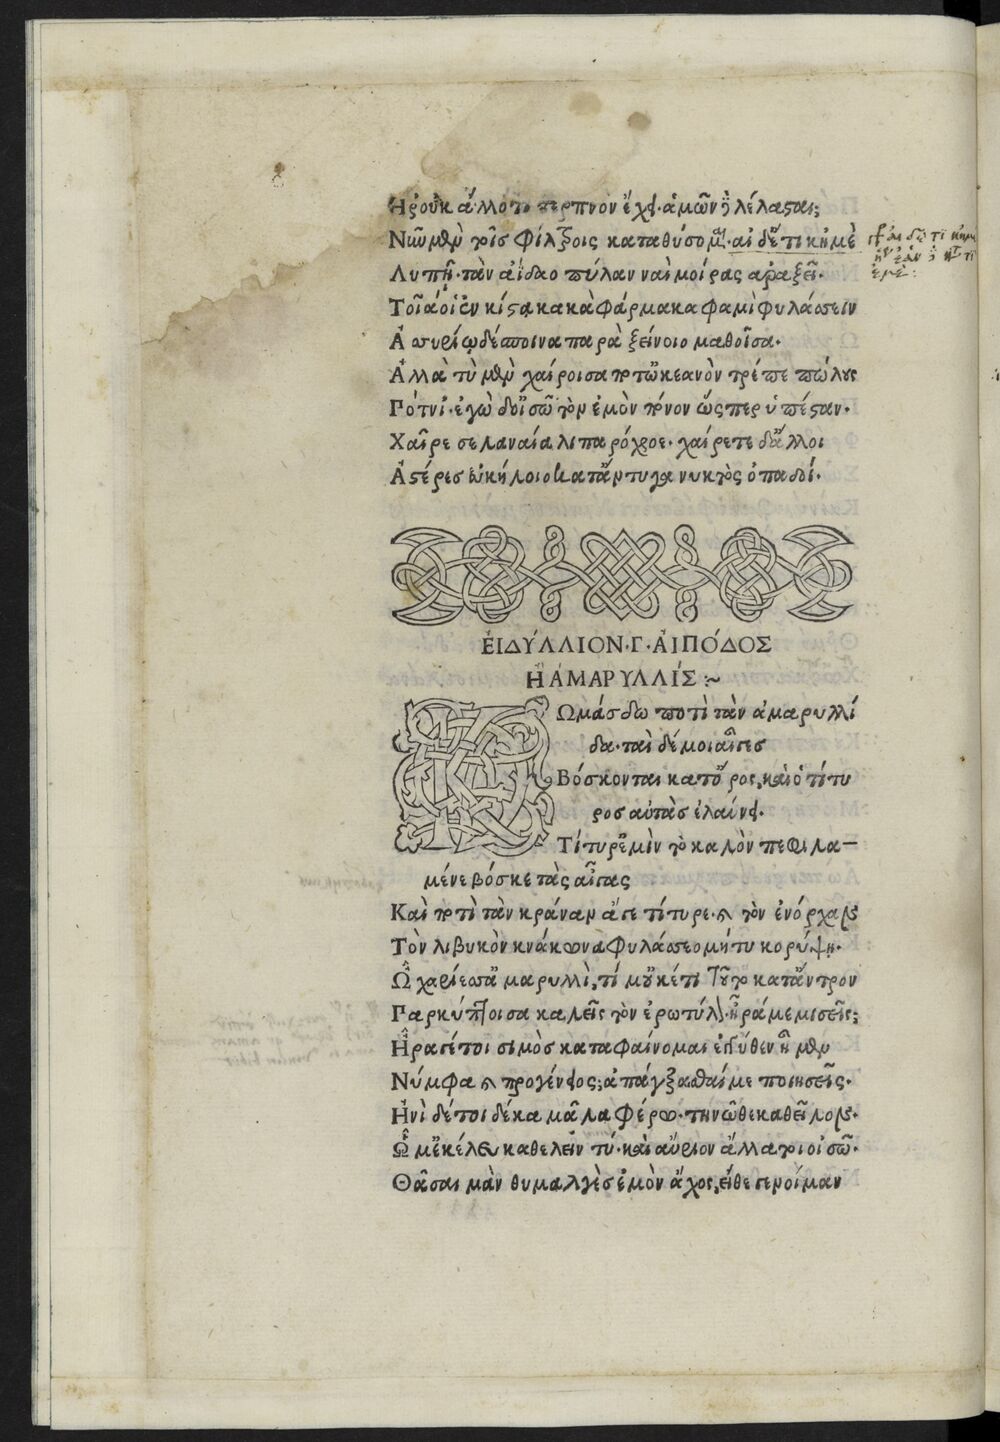 Ἠρ᾽ οὐκ ἄλλό τι τερπνὸν ἔχει· ἁμῶν δὲ λέλασαι;
Νῦν μὲν τοῖς φίλτροις καταθύσομαι· αἰ δ᾽ ἔτι κἠμὲ
Λυπῇ· τὰν ἀΐδαο πύλαν ναὶ μοίρας ἀραξεῖ·
Τοῖά οἱ ἐν κίστᾳ κακὰ φάρμακα φαμὶ φυλάσσειν
Ἀσσυρίῳ δέσποινα παρὰ ξείνοιο μαθοῖσα·
Ἀλλὰ τὺ μὲν χαίροισα ποτ᾽ ὠκεανὸν τρέπε πώλους
Πότνι᾽· ἐγὼ δ᾽ οἰσῶ τὸν ἐμὸν πόνον ὥσπερ ὑπέσταν·
Χαῖρε σελαναία λιπαρόχροε· χαίρετε δ᾽ ἄλλοι
Ἀστέρες εὐκήλοιο κατ᾽ ἄντυγα νυκτὸς ὀπαδοί·
ΕἸΔΎΛΛΙΟΝ·Γ·ΑἸΠΌΛΟΣ
Ἢ ἈΜΑΡΥΛΛΊΣ :~
ΚΩμάσδω ποτὶ τὰν ἀμαρυλλί
δα· ταὶ δέ μοι αἶγες
Βόσκονται κατ᾽ ὄρος, καὶ ὁ τίτυ
ρος αὐτὰς ἐλαύνει·
Τίτυρ᾽ ἐμὶν τὸ καλὸν πεφιλα—
μένε βόσκε τὰς αἶγας
Καὶ ποτὶ τὰν κράναν ἄγε τίτυρε· καὶ τὸν ἐνόρχαν
Τὸν λιβυκὸν κνάκωνα φυλάσσεο μή τυ κορύψῃ·
Ὦ χαρίεσσ᾽ ἀμαρυλλὶ, τί μ᾽ οὐκέτι τοῦτο κατ᾽ ἄντρον
Παρκύπτοισα καλεῖς τὸν ἐρωτύλον· ἦ ῥά με μισεῖς;
Ἦ ῥά γέ τοι σιμὸς καταφαίνομαι ἐγγύθεν ἦμεν
Νύμφα καὶ προγένειος; ἀπάγξασθαί με ποιησεῖς·
Ἠνὶ δέ τοι δέκα μᾶλα φέρω· τηνῶθε καθεῖλον·
Ὧ μ᾽ ἐκέλευ καθελεῖν τύ· καὶ αὔριον ἄλλα τοι οἰσῶ·
Θᾶσαι μὰν θυμαλγὲς ἐμὸν ἄχος, εἴθε γενοίμαν